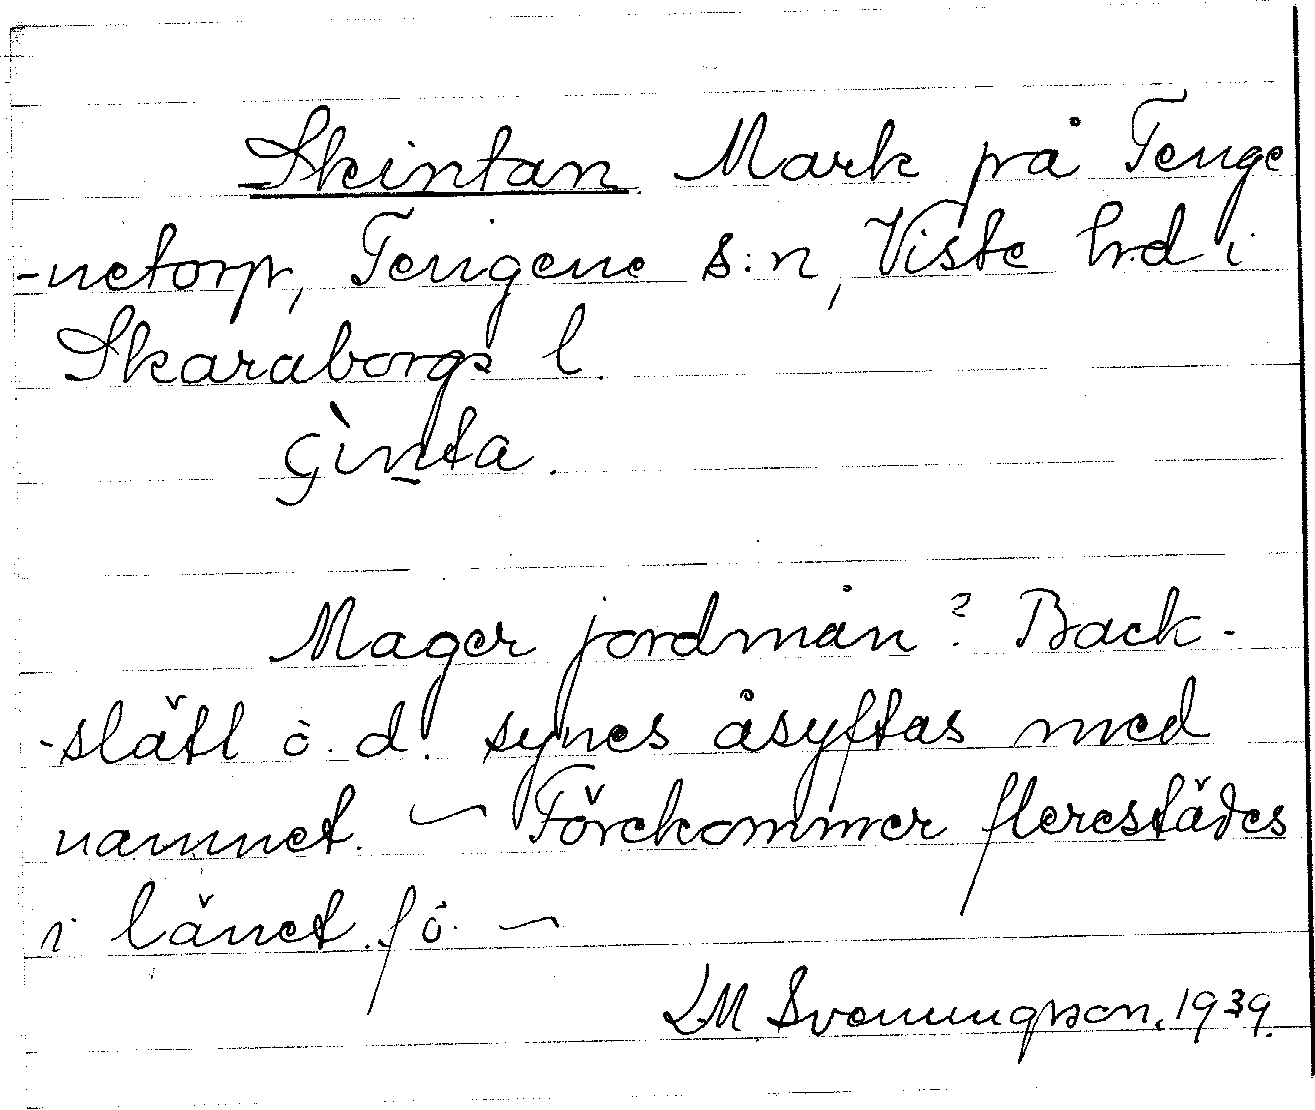 Skintan Mark på Tenge
-netorp, Tengene s:n, Viste hrd i
Skaraborgs l.
çìnta.
Mager jordmån? Back-
-slätt o. d. synes åsyftas med
namnet. — Förekommer flerestädes
i länet f ö. —
LM Svenungsson. 1939.